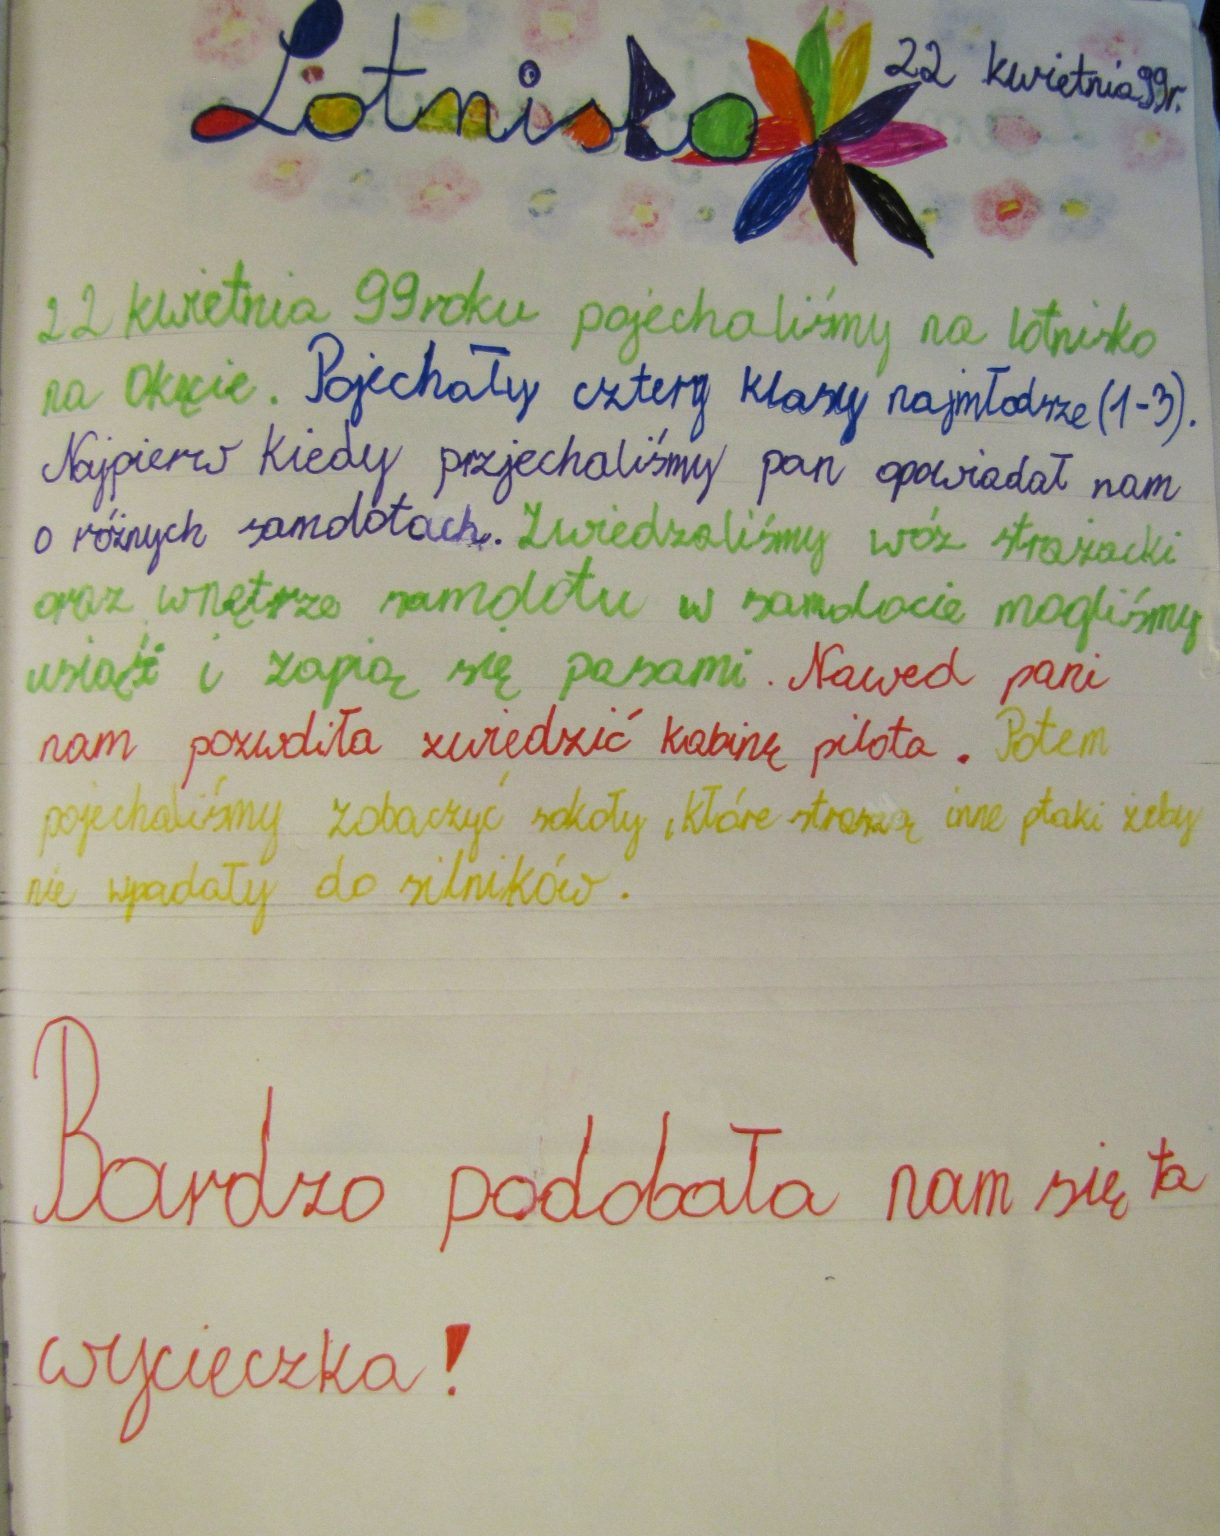 Lotnisko
22 kwietnia 99r.
22 kwietnia 99 roku pojechaliśmy na lotnisko
na Okęcie. Pojechały cztery klasy najmłodsze (1-3).
Najpierw kiedy przjechaliśmy pan opowiadał nam
o różnych samolotach. Zwiedzaliśmy wóz strażacki
oraz wnętrze samolotu w samolocie mogliśmy
usiąść i zapiąą się pasami. Nawed pani
nam pozwoliła zwiedzić kabinę pilota. Potem
pojechaliśmy zobaczyć sokoły, które straszą inne ptaki żeby
nie wpadały do silników.
Bardzo podobała nam się ta
wycieczka!